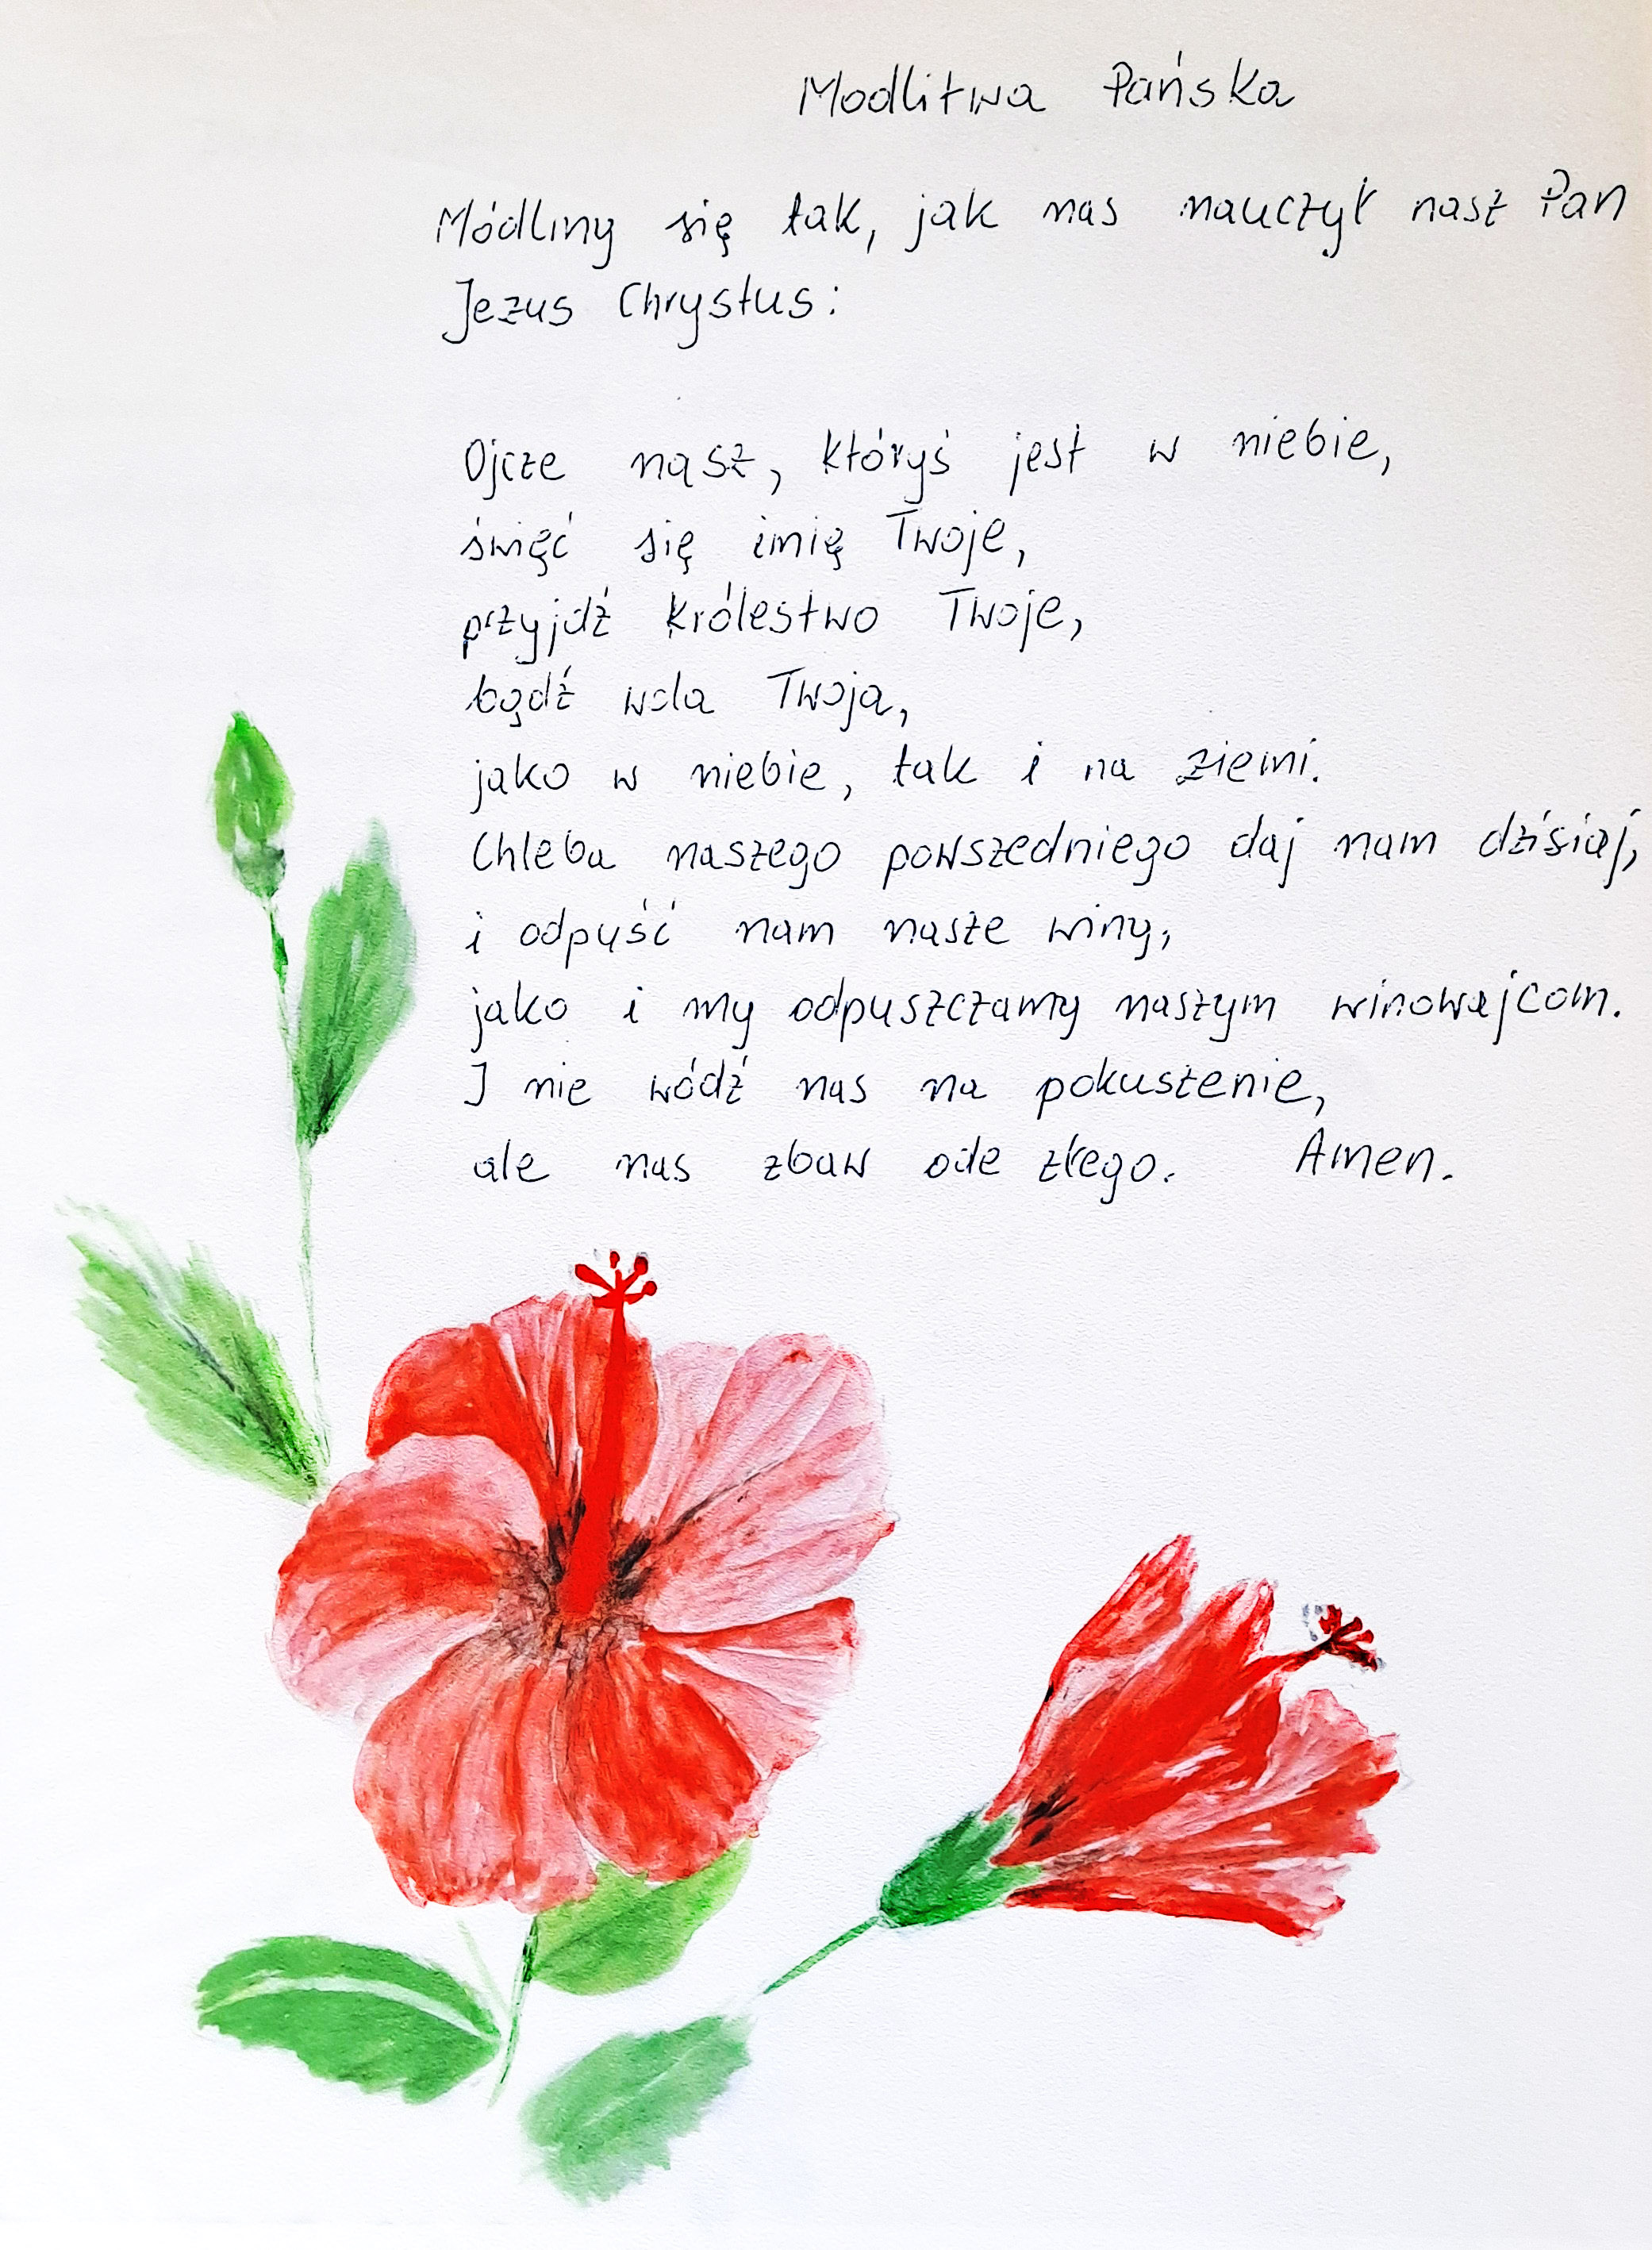 Modlitwa Pańska
Módlmy się tak, jak nas nauczył nasz Pan
Jezus Chrystus:
Ojcze nasz, któryś jest w niebie,
święć się imię Twoje,
przyjdź Królestwo Twoje,
bądź wola Twoja,
jako w niebie, tak i na ziemi.
Chleba naszego powszedniego daj nam dzisiaj,
i odpuść nam nasze winy,
jako i my odpuszczamy naszym winowajcom.
I nie wódź nas na pokuszenie,
ale nas zbaw ode złego. Amen.